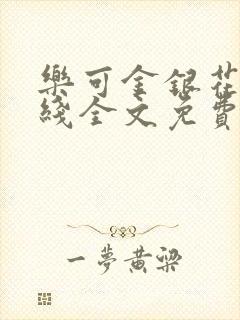 樂可金銀花
綫全文免費
一夢黃梁